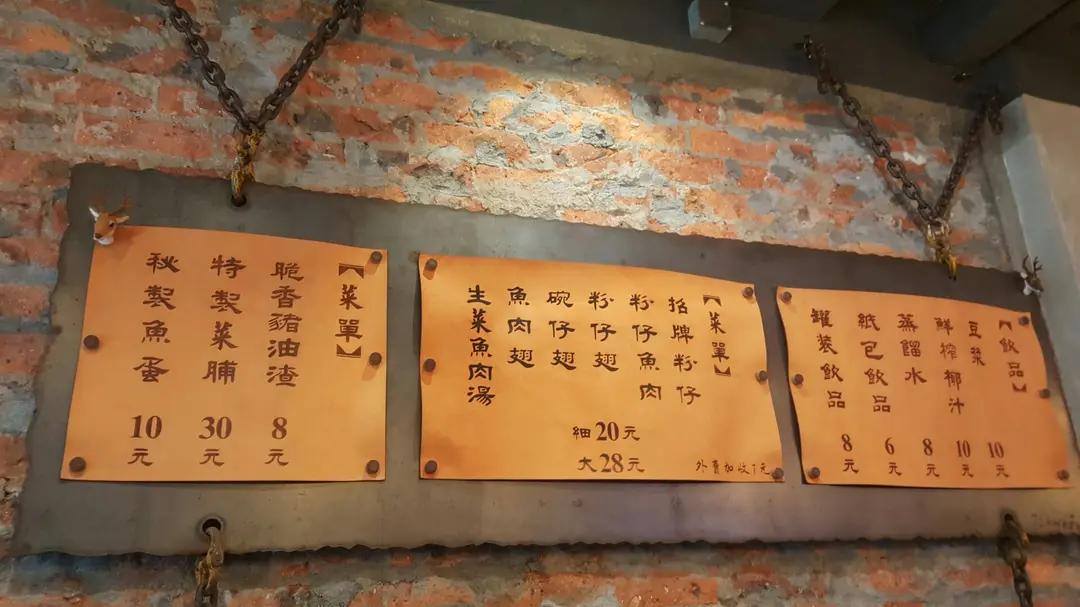 【菜單】
脆香豬油渣
8元
特製菜脯
30元
秘製魚蛋
10元
【菜單】
招牌粉仔
粉仔魚肉
粉仔翅
碗仔翅
魚肉翅
生菜魚肉湯
細20元
大28元
外賣加收1元
【飲品】
豆漿
10元
鮮榨椰汁
10元
蒸餾水
8元
紙包飲品
6元
罐裝飲品
8元